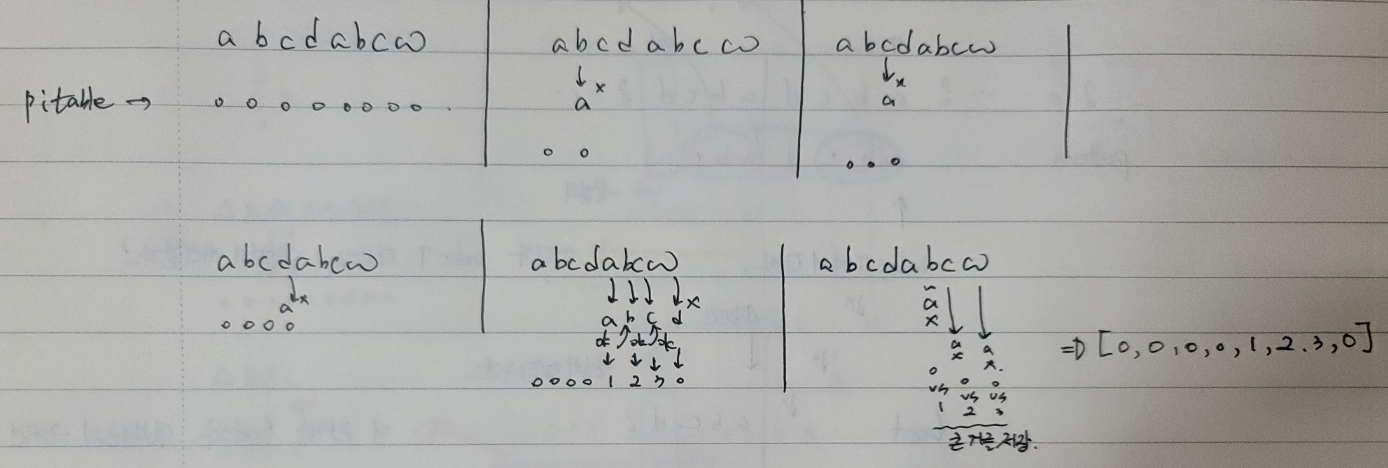 a b c d a b c w
pitable → 0 0 0 0 0 0 0 0
a b c d a b c w
↓ x
a
0 0
a b c d a b c w
↓ x
a
0 0 0
a b c d a b c w
↓ x
a
0 0 0 0
a b c d a b c w
↓ ↓ ↓ ↓ x
a b c d
ok ok ok
↓ ↓ ↓ ↓
0 0 0 0 1 2 3 0
a b c d a b c w
a ↓ ↓
x a a
x x
0 0 0
vs vs vs
1 2 3
큰 거를 저장.
⇒ [0, 0, 0, 0, 1, 2. 3, 0]